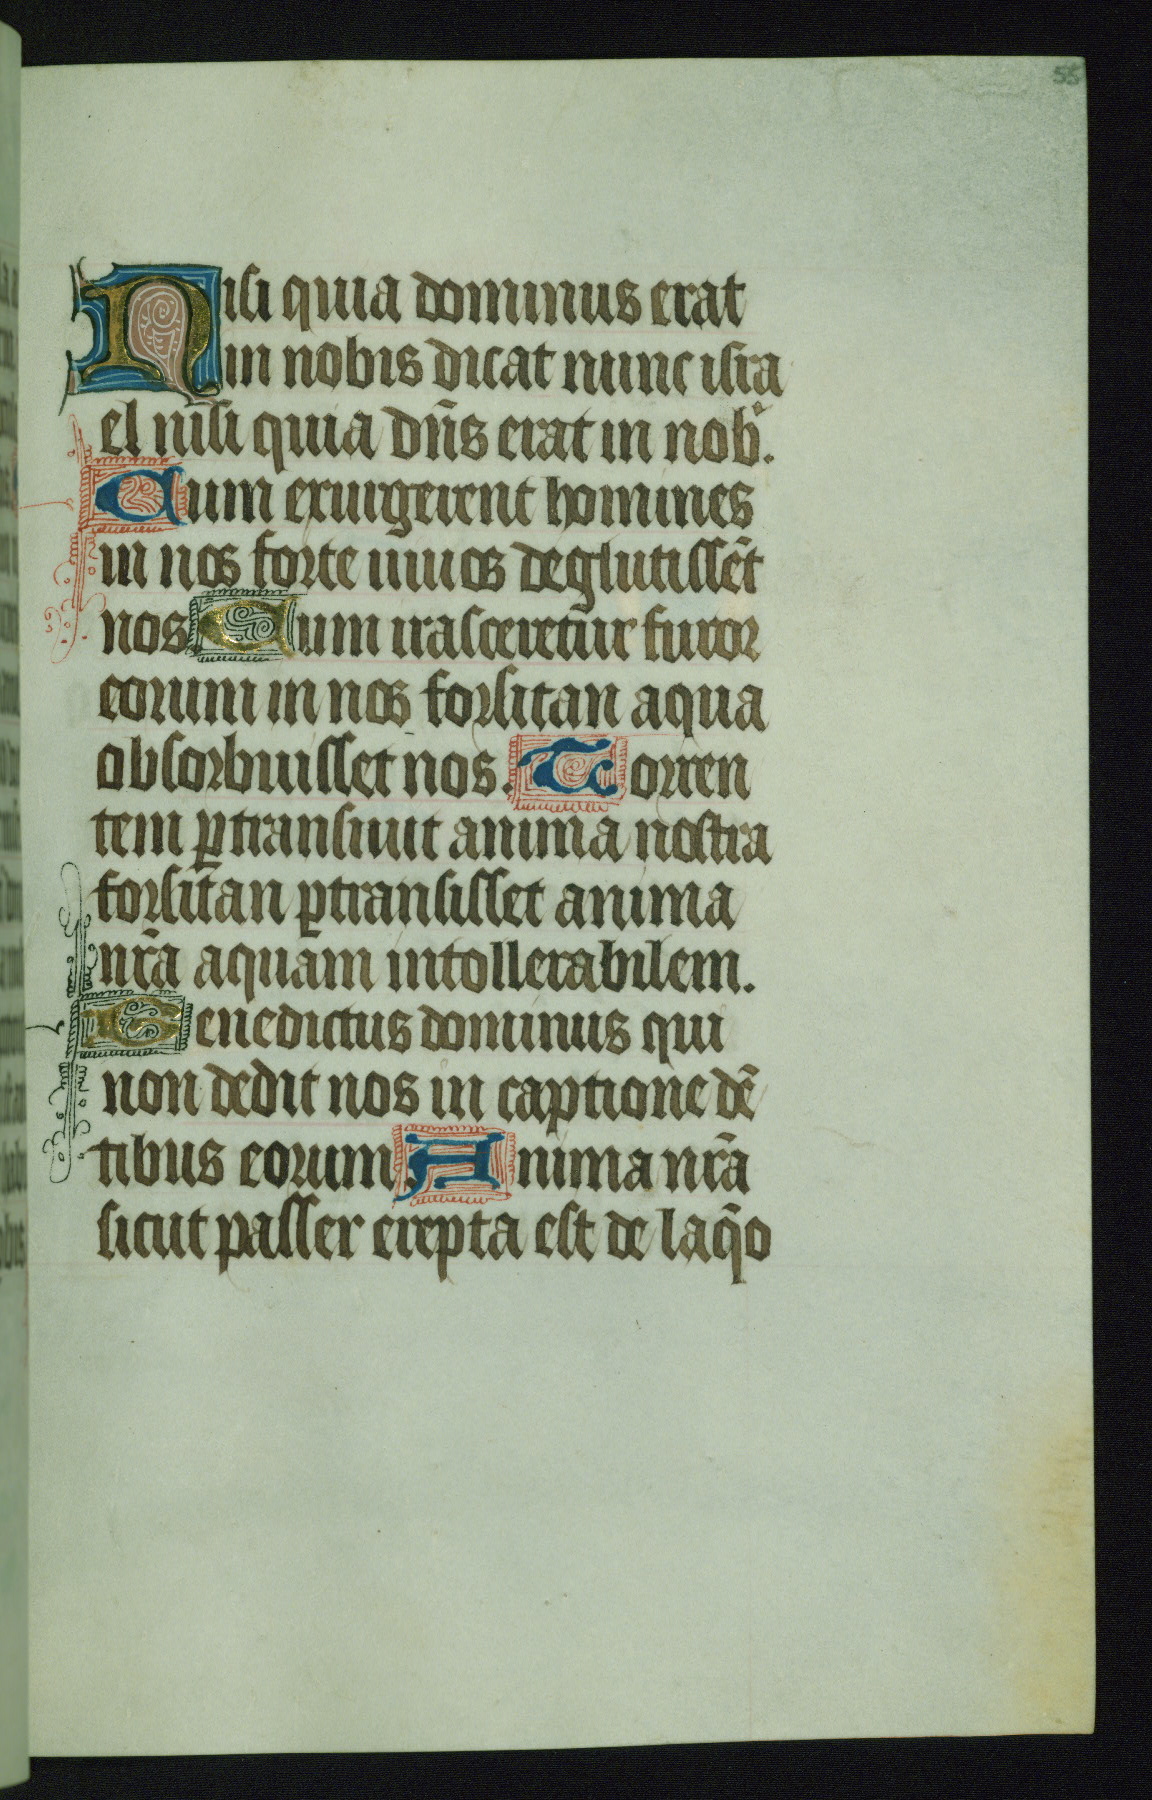 55
Nisi quia dominus erat
in nobis dicat nunc isra
el nisi quia dn̄s erat in nob̾.
Cum exurgerent homines
in nos forte vivos deglutissēt
nos. Cum irasceretur furor
eorum in nos forsitan aqua
obsorbuisset nos. Torren
tem ꝑtransivit anima nostra
forsitan ꝑtransisset anima
nr̄a aquam intollerabilem.
Benedictus dominus qui
non dedit nos in captione dē
tibus eorum. Anima nr̄a
sicut passer erepta est de laq̄o